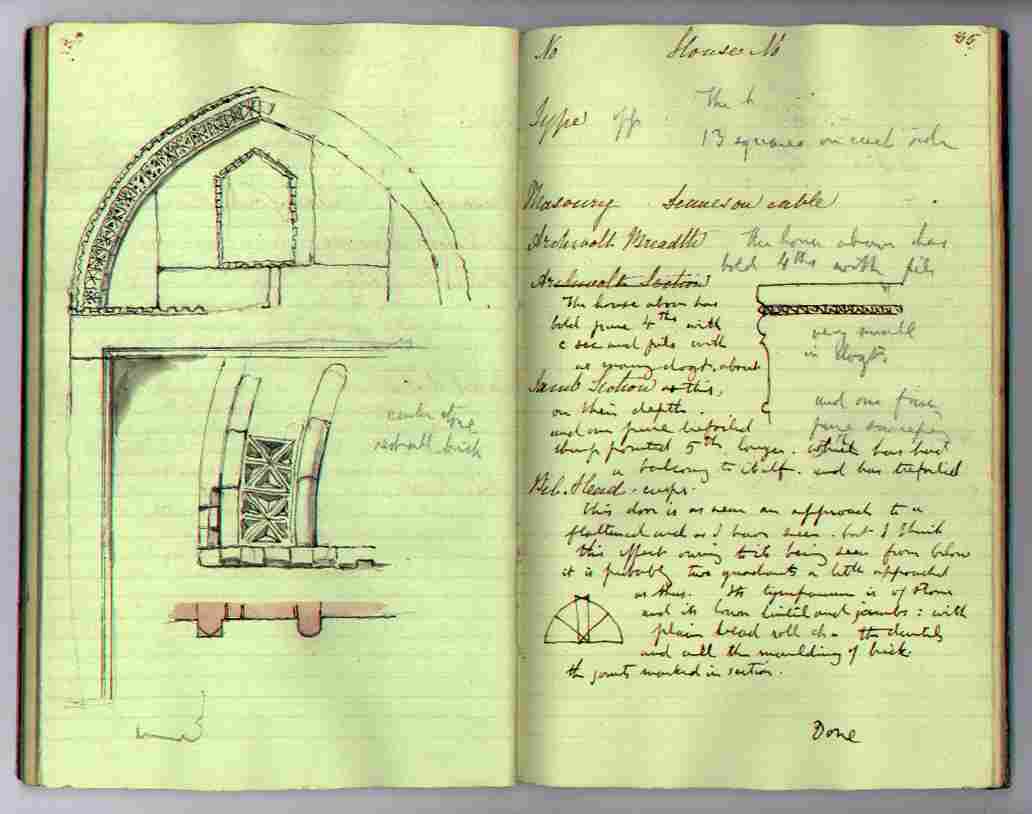 center stone
rest all brick
No House No 65
Type opp. The h
13 squares on each side
Masonry
Archivolt Breadth The house above has
bold 4ths with pils
Archivolt Section
The house above has
bold pure 4ths with
and pils with
as many dogt. about
very small
in dogt.
Jamb Section as this,
on their depths.
and one finer
and one pure trefoiled
pointed 5th longer. which has had
a balcony to itself. and has trefoiled
Head. cusps.
this door is as near an approach to a
flattened arch as I have seen. but I think
this effect owing to its being seen from below
it is probably two quadrants a little approached
as thus. Its tympanum is of stone
and its lower lintel and jambs: with
plain bead roll &c. the dentils
and all the moulding of brick.
the joints marked in section.
Done